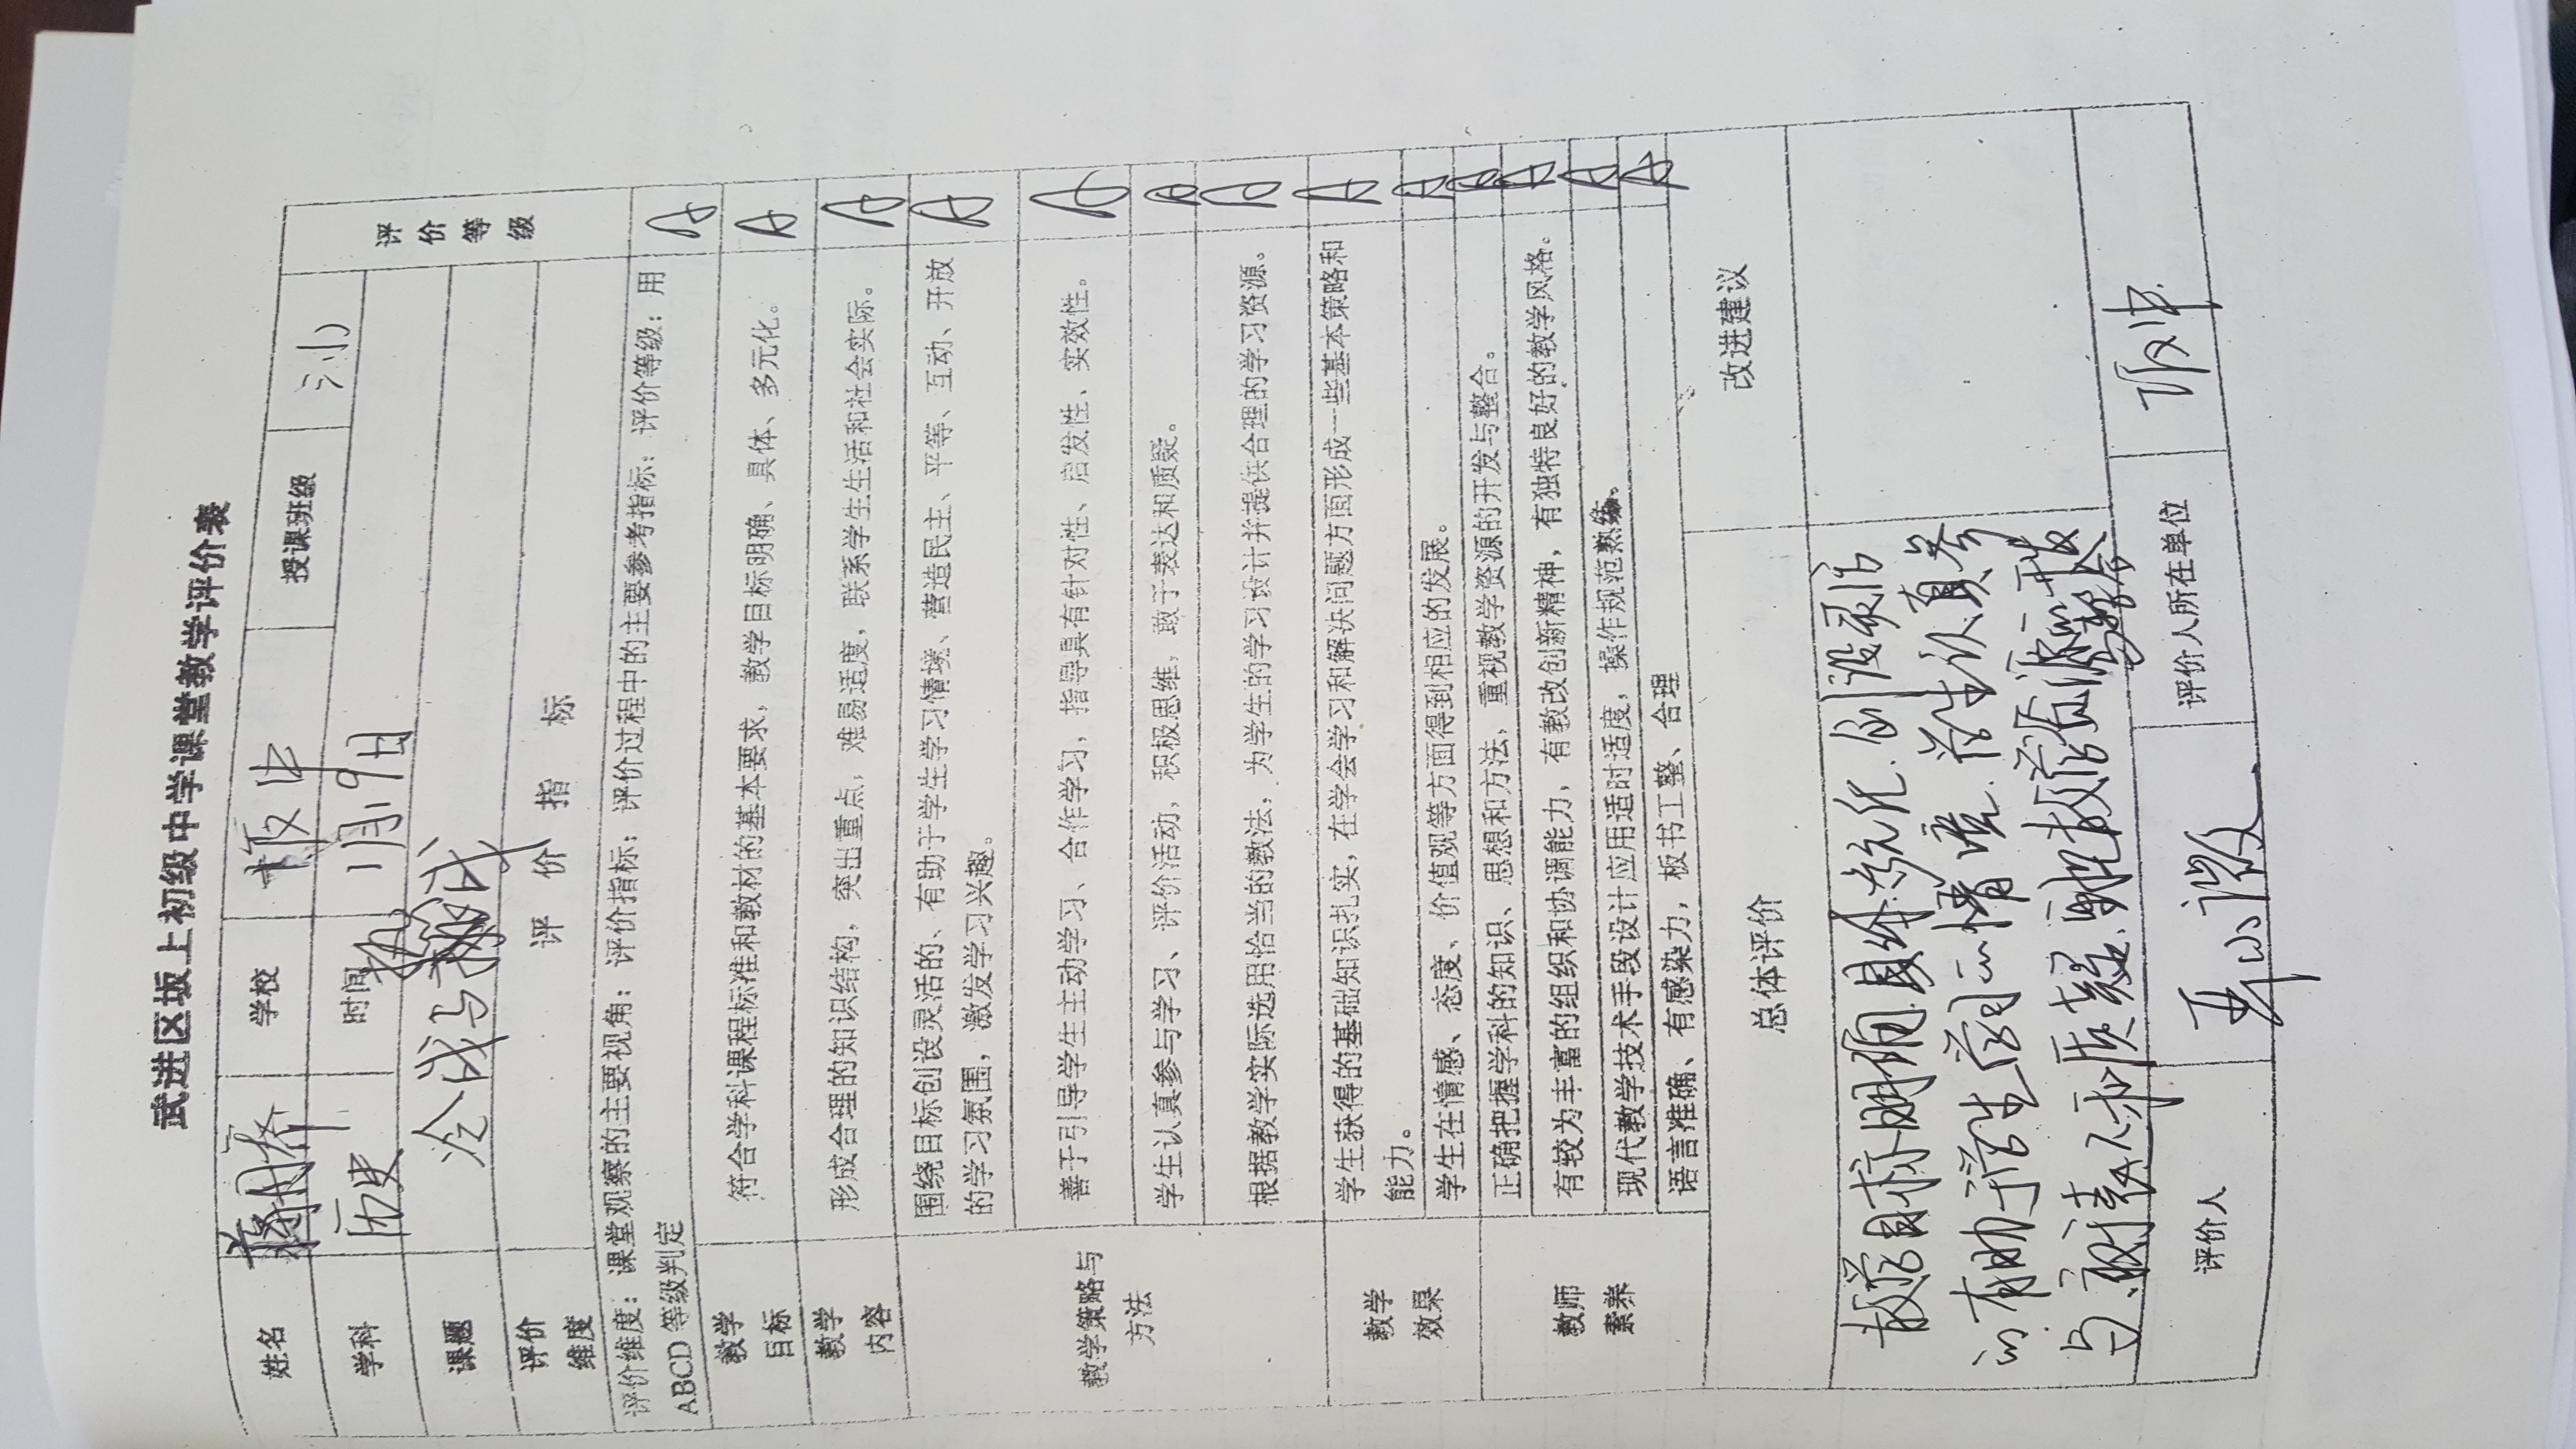 武进区坂上初级中学课堂教学评价表
姓名 学校 坂中 授课班级 评价等级
学科 历史 时间 1月9日
课题 冷战与
评价维度 评价指标
评价维度：课堂观察的主要视角；评价指标：评价过程中的主要参考指标；评价等级：用 A
ABCD 等级判定
教学目标 符合学科课程标准和教材的基本要求，教学目标明确、具体、多元化。 A
教学内容 形成合理的知识结构，突出重点，难易适度，联系学生生活和社会实际。 A
教学策略与方法 围绕目标创设灵活的、有助于学生学习情境、营造民主、平等、互动、开放 A
的学习氛围，激发学习兴趣。
善于引导学生主动学习、合作学习，指导具有针对性、启发性、实效性。 A
学生认真参与学习、评价活动，积极思维，敢于表达和质疑。 A
根据教学实际选用恰当的教法，为学生的学习设计并提供合理的学习资源。 A
教学效果 学生获得的基础知识扎实，在学会学习和解决问题方面形成一些基本策略和 A
能力。
学生在情感、态度、价值观等方面得到相应的发展。 A
教师素养 正确把握学科的知识、思想和方法，重视教学资源的开发与整合。 A
有较为丰富的组织和协调能力，有教改创新精神，有独特良好的教学风格。 A
现代教学技术手段设计应用适时适度，操作规范熟练。 A
语言准确、有感染力，板书工整、合理 A
总体评价 改进建议
教学目标明确具体多元化，创设灵活
的有助于学生学习的情境，学生认真参
与，敢于表达和质疑，重视教学资源的开发
与整合
评价人 评价人所在单位 坂中